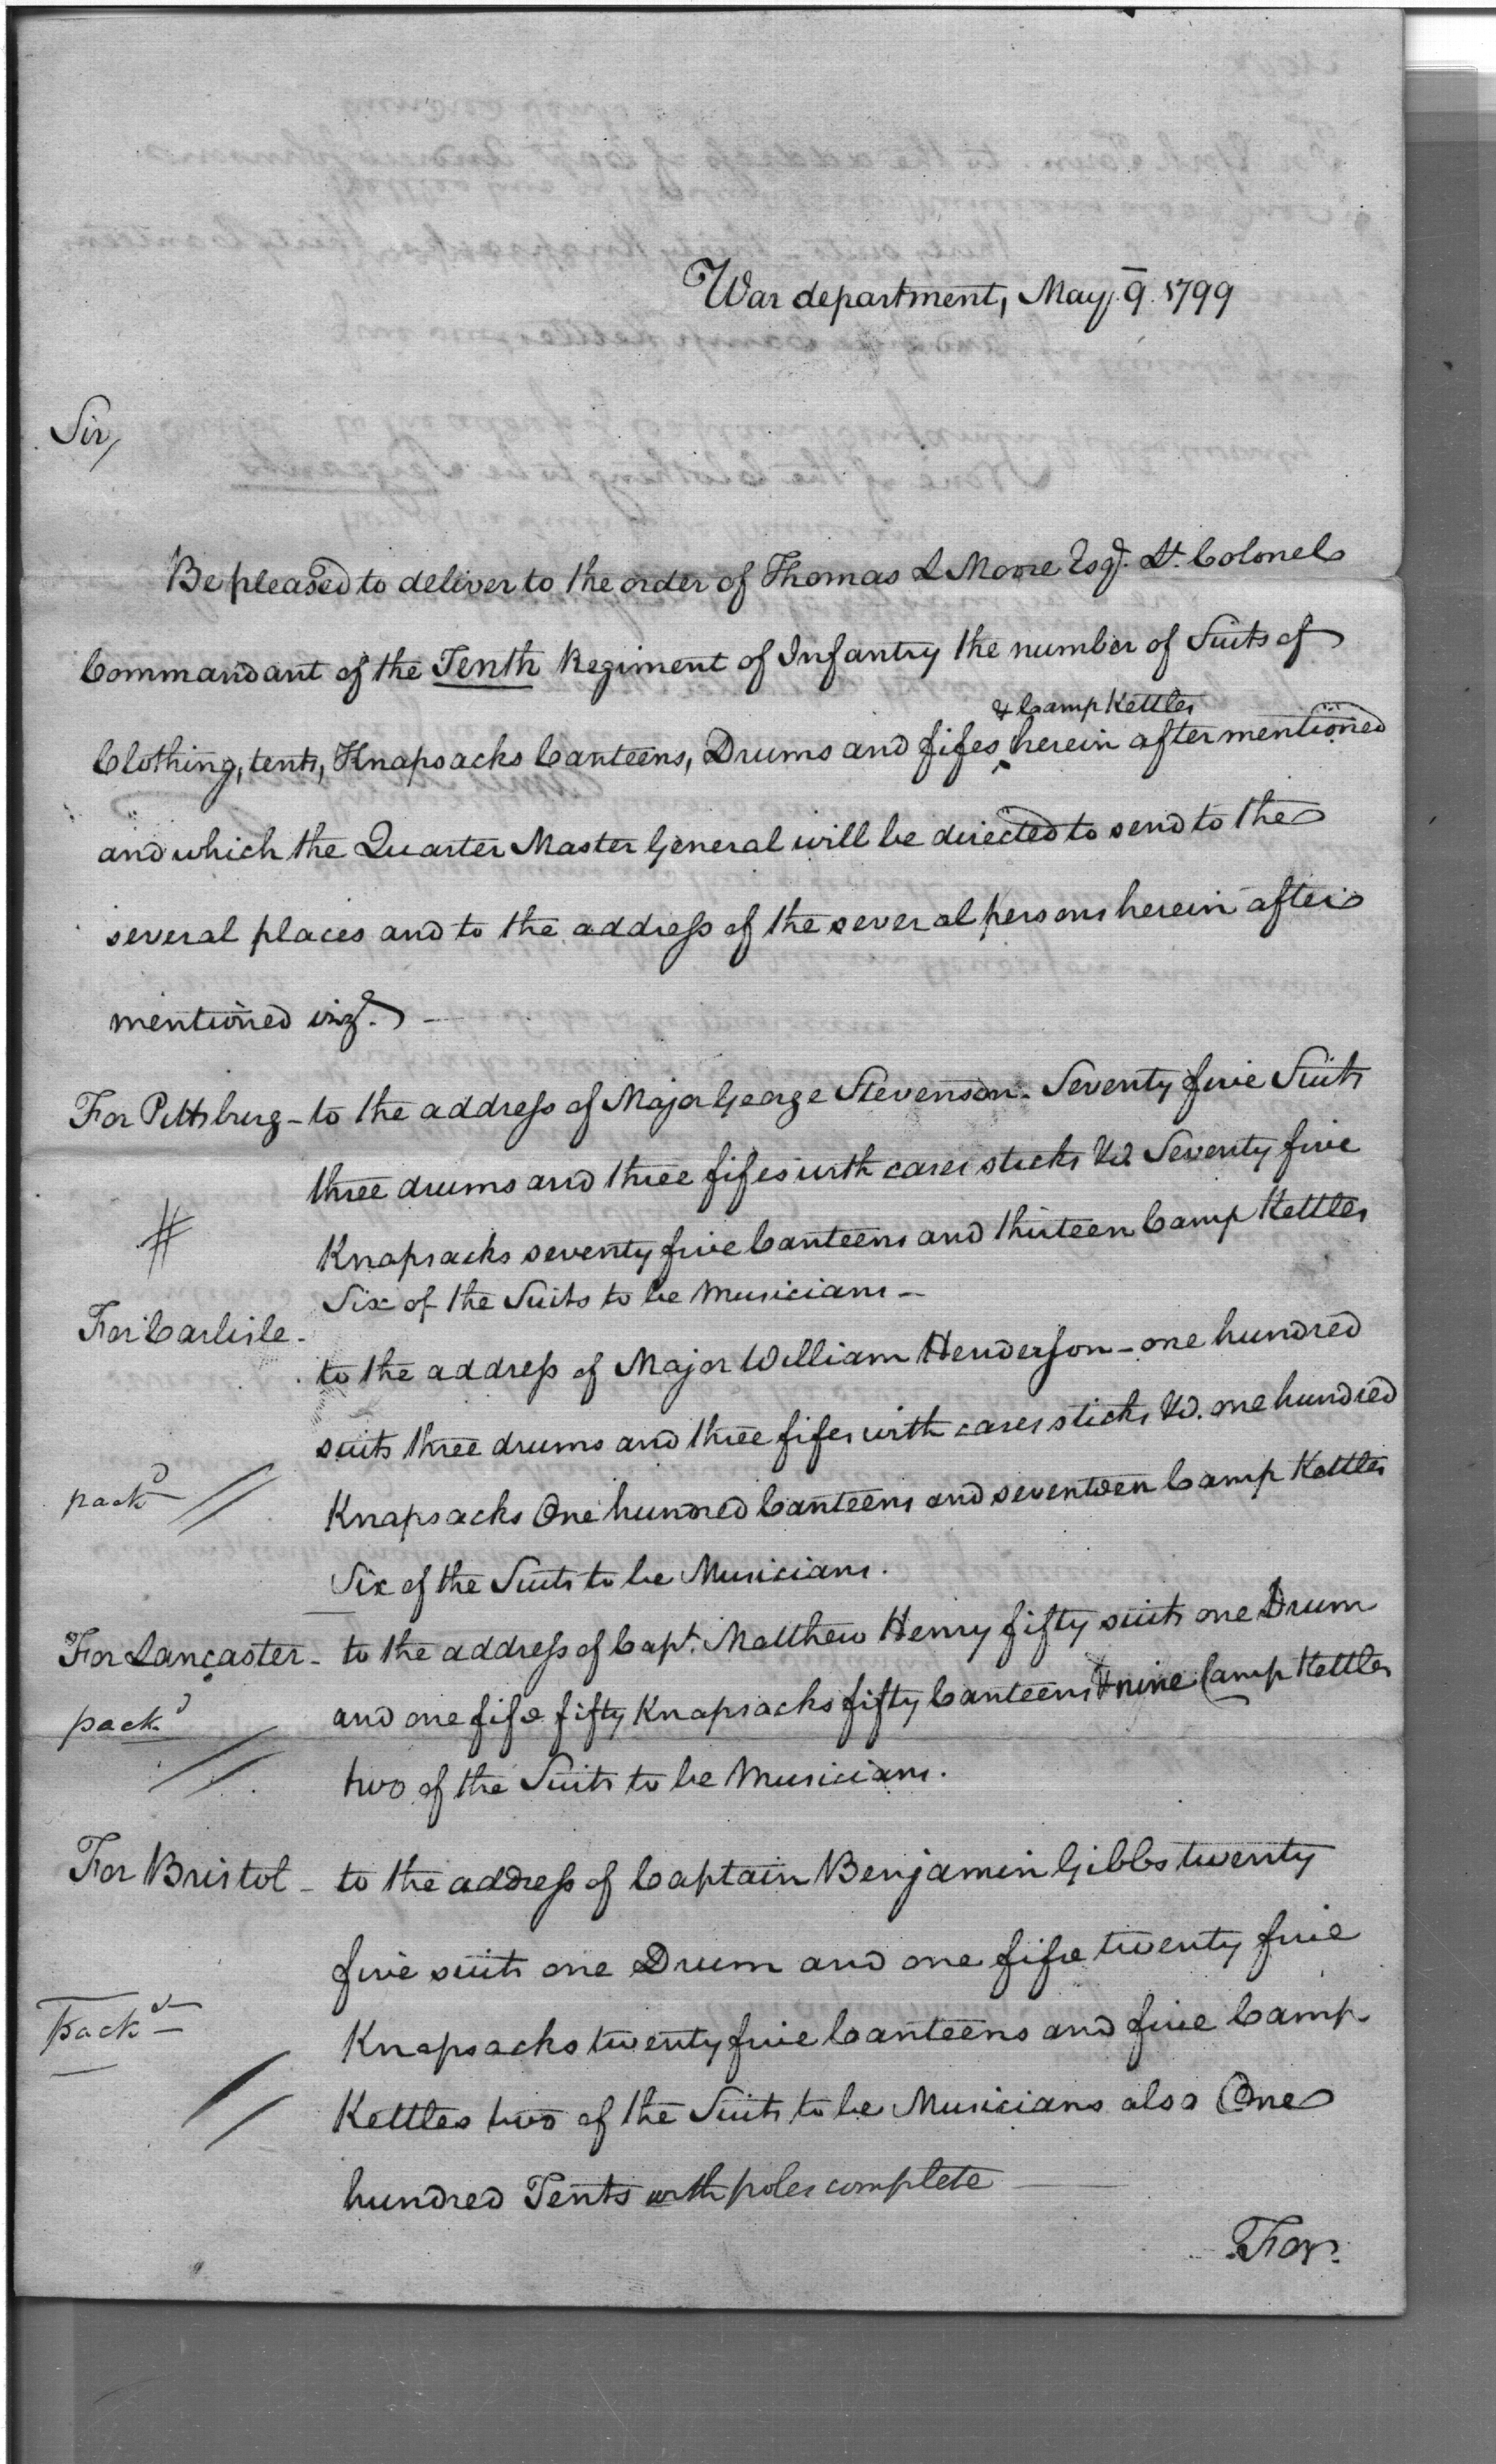 War department, May 9. 1799
Sir,
Be pleased to deliver to the order of Thomas L Moore Esqr. Lt. Colonel
Commandant of the Tenth Regiment of Infantry the number of Suits of
& Camp Kettles
Clothing, tents, Knapsacks Canteens, Drums and fifes ‸ herein after mentioned
and which the Quarter Master General will be directed to send to the
several places and to the address of the several persons herein after
mentioned vizt. —
For Pittsburg – to the address of Major George Stevenson. Seventy five Suits
three drums and three fifes with cases sticks &c. Seventy five
# Knapsacks seventy five Canteens and thirteen Camp Kettles
Six of the Suits to be Musicians —
For Carlisle –
to the address of Major William Henderson – one hundred
suits three drums and three fifes with cases sticks &c. one hundred
packd // Knapsacks One hundred Canteens and seventeen Camp Kettles
Six of the Suits to be Musicians.
For Lancaster – to the address of Capt. Matthew Henry fifty suits one Drum
packd // and one fife fifty Knapsacks fifty Canteens & nine Camp Kettles
two of the Suits to be Musicians.
For Bristol – to the address of Captain Benjamin Gibbs twenty
five suits one Drum and one fife twenty five
Packd Knapsacks twenty five Canteens and five Camp
// Kettles two of the Suits to be Musicians also One
hundred Tents with poles complete —
For